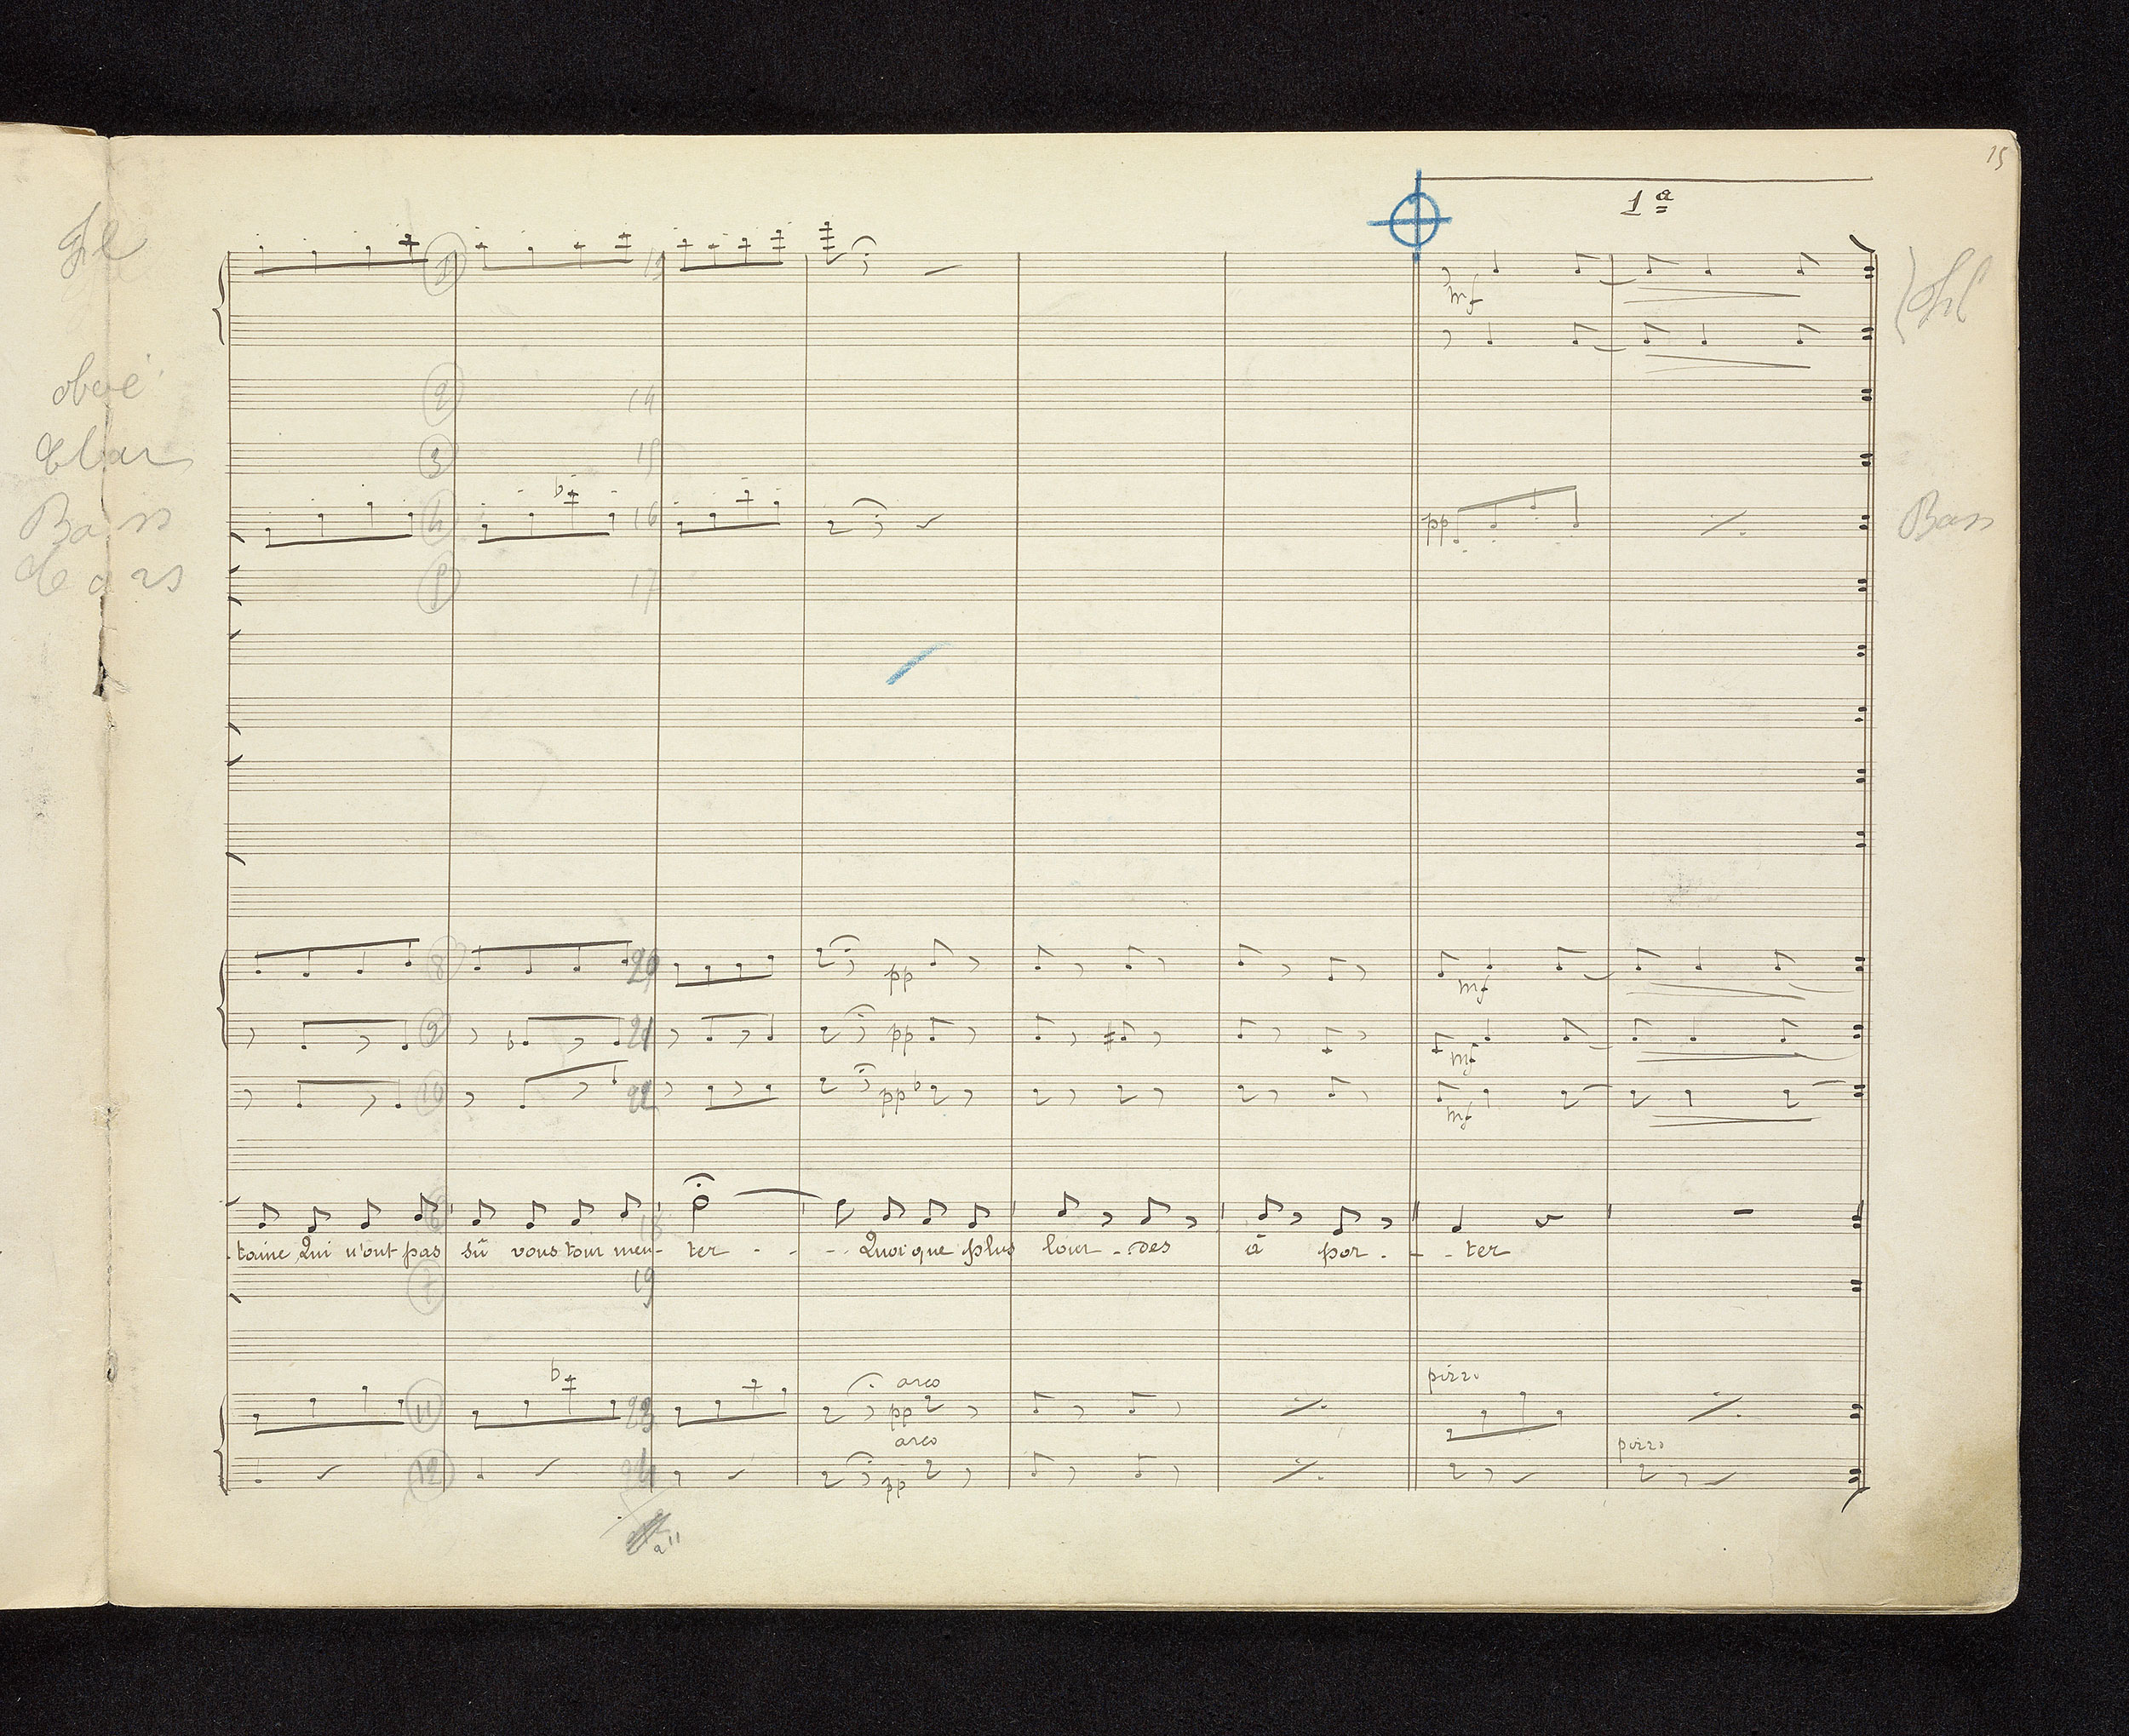 15
1ª
Fl
Fl
mf
oboé
2
14
Clar
3
15
Bass
16
pp
Bass
Cors
17
8
20
pp
mf
9
21
pp
mf
10
22
pp
mf
18
taine Qui n'ont pas sû vous tour men- ter - - - Quoi que plus lour - des à por - - - ter
7
19
arco
pizz.
11
23
pp
arco
pizz.
12
24
pp